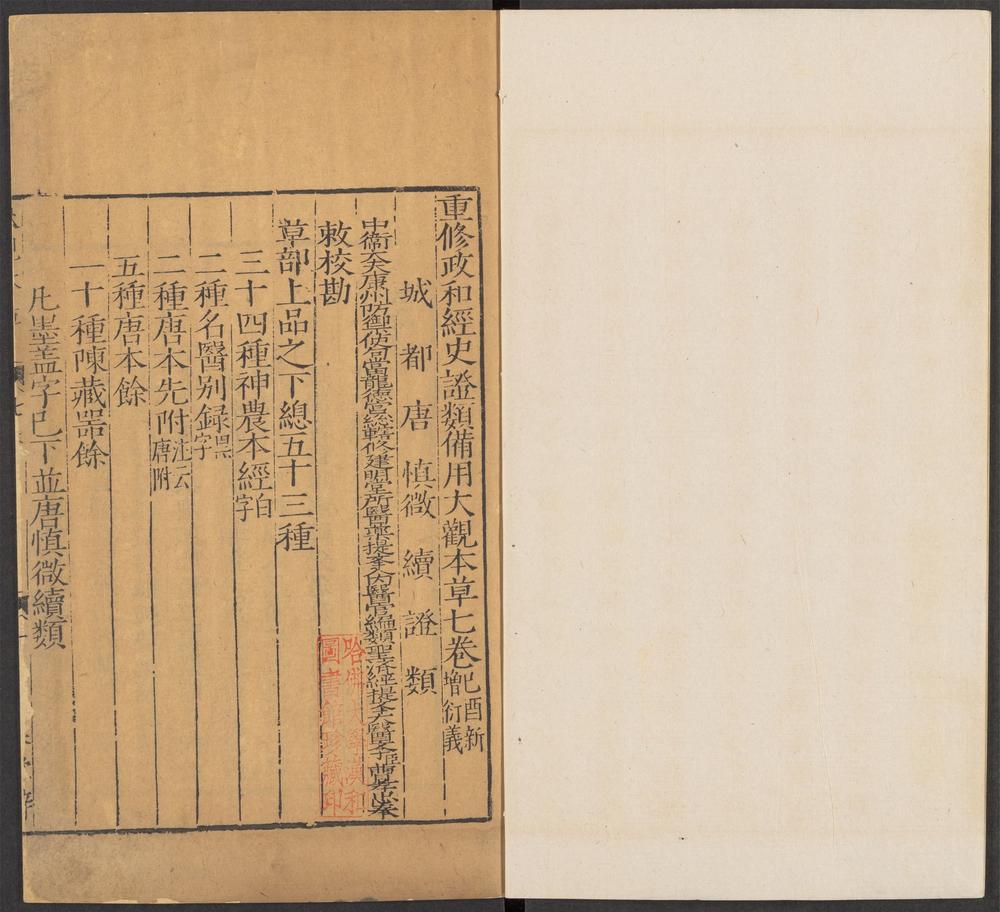 重修政和經史證類備用大觀本草七卷己酉新增衍義
城都唐慎微續證類
中衛大夫康州防禦使句當龍德宮總轄修建明堂所醫藥提舉入內醫官編類聖濟經提舉太醫學臣曹孝忠奉
敕校勘
草部上品之下總五十三種
三十四種神農本經白字
二種名醫別録墨字
二種唐本先附注云唐附
五種唐本餘
一十種陳藏器餘
凡墨蓋字已下並唐慎微續類
哈佛大學漢和
圖書館珍藏印